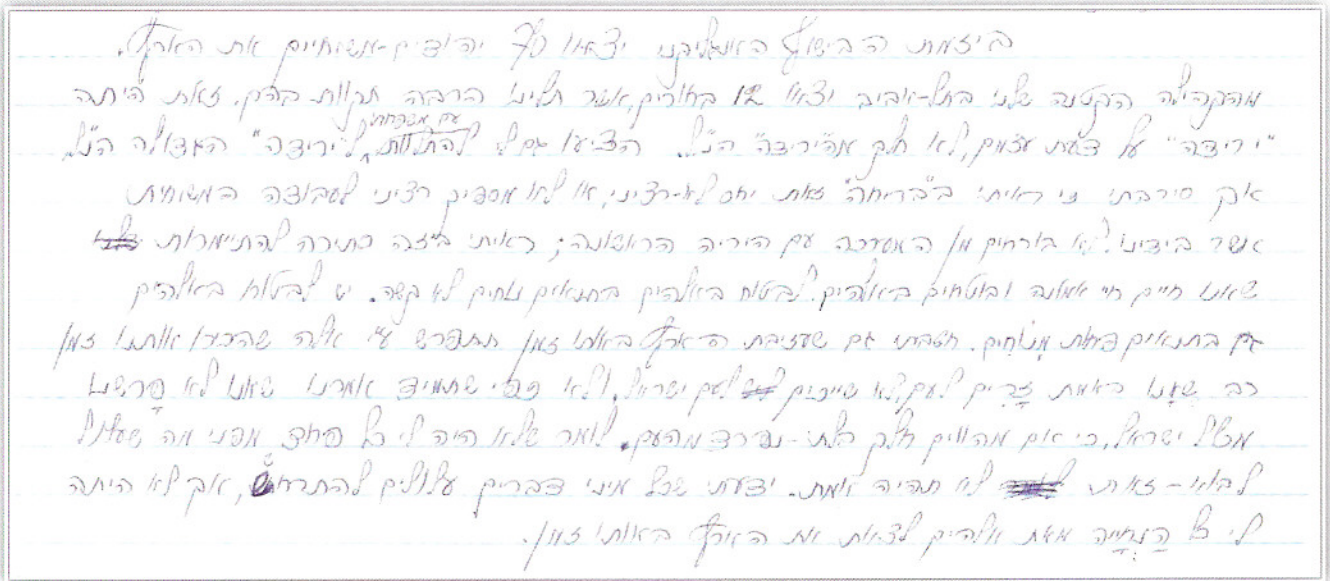 ביזמת הבישוף האנגליקני יצאו 70 יהודים-משיחיים את הארץ.
מהקהילה הקטנה שלנו בתל-אביב יצאו 12 בחורים, אשר תלינו הרבה תקוות בהם. זאת היתה
"ירידה" על דעת עצמם, לא חלק מה"ירידה" הנ"ל. הציעו גם לי להתלוות עם משפחתי ל"ירידה" הגדולה הנ"ל,
אך סירבתי כי ראיתי ב"בריחה" זאת יחס לא-רציני, או לא מספיק רציני לעבודה המשיחית
אשר בידינו. לא בורחים מן המערכה עם היריה הראשונה; ראיתי בזה סתירה להתיימרות
שאנו חיים חיי אמונה ובוטחים באלהים. לבטוח באלהים בתנאים נוחים לא קשה. יש לבטוח באלהים
גם בתנאים פחות מנוחים. חשבתי גם שעזיבת הארץ באותו זמן תתפרש ע"י אלה שהכירו אותנו זמן
רב שאנו באמת זרים לעם, לא שייכים לעם ישראל, ולא כפי שתמיד אמרנו שאנו לא פרשנו
מכלל ישראל, כי אם מהווים חלק בלתי-נפרד מהעם. לומר שלא היה לי כל פחד מפני מה שעלול
לבוא - זאת לא תהיה אמת. ידעתי שכל מיני דברים עלולים להתרחש, אך לא היתה
לי כל הנחייה מאת אלהים לצאת את הארץ באותו זמן.